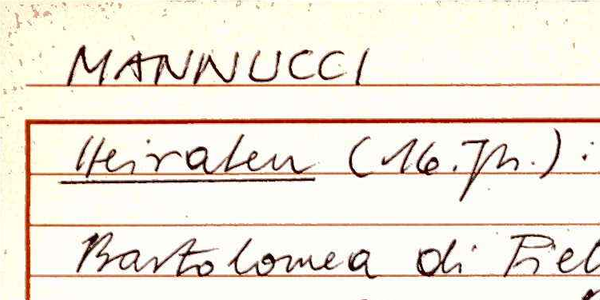 MANNUCCI
Heiraten (16. Jh.):
Bartolomea di